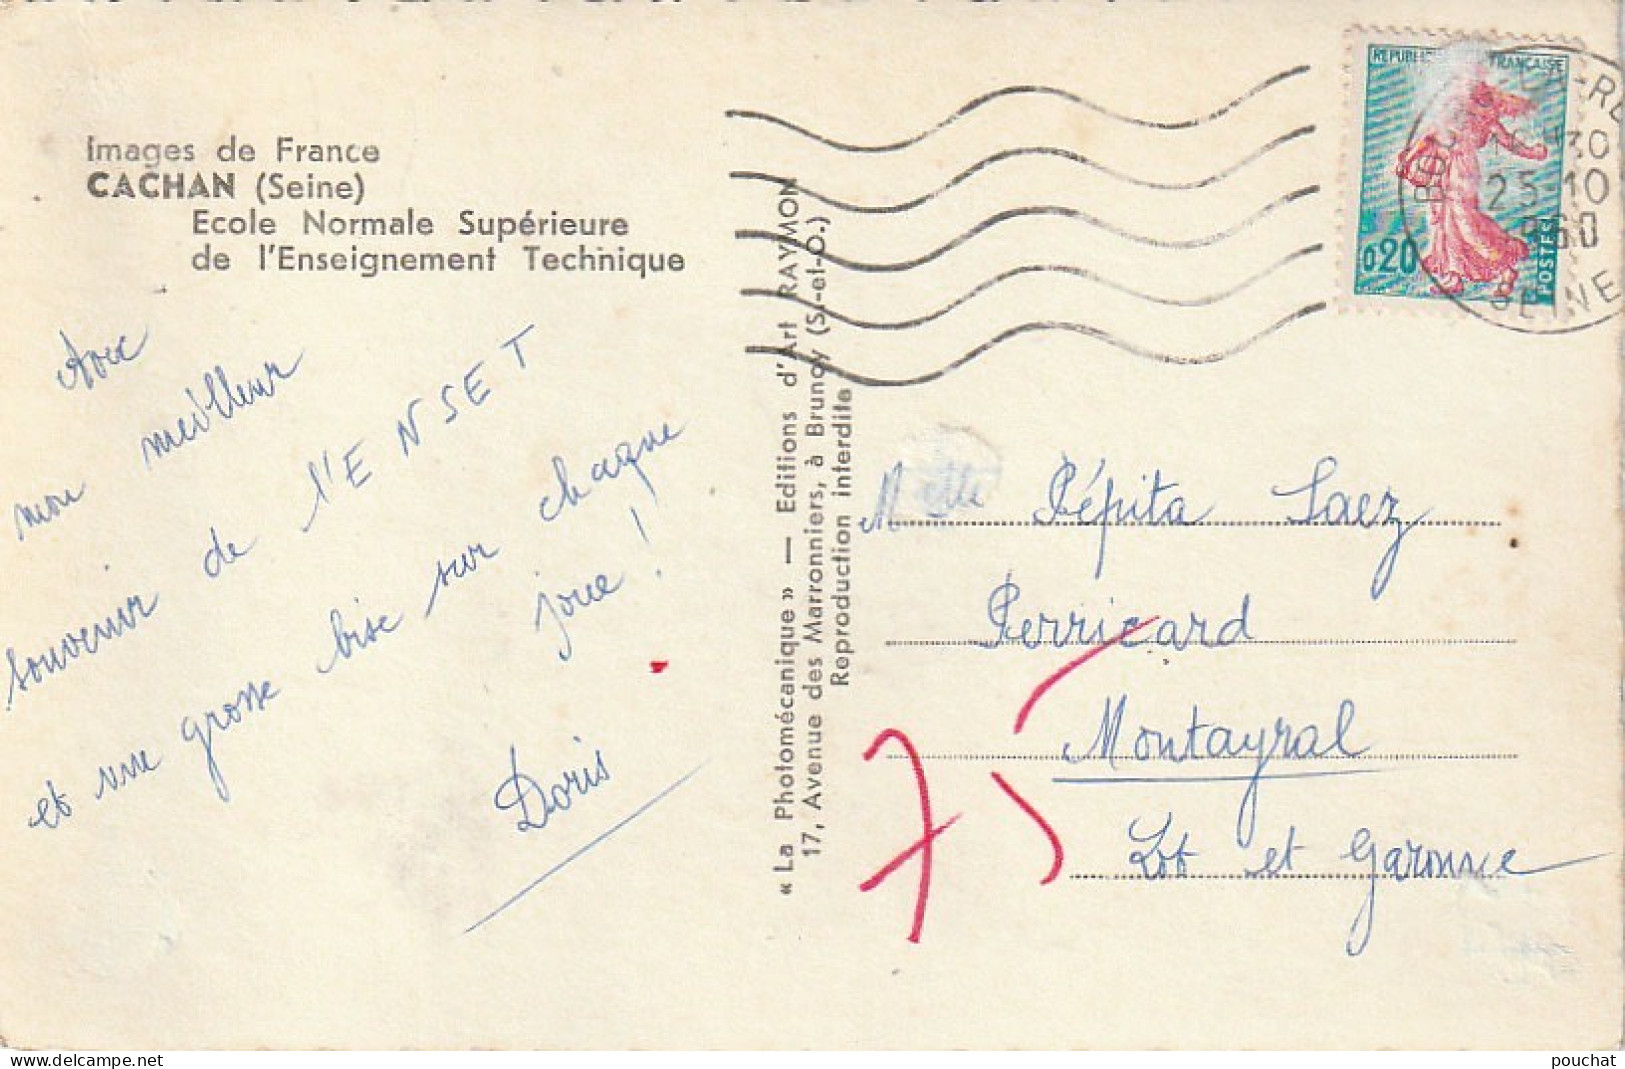 Images de France
CACHAN (Seine)
Ecole Normale Supérieure
de l'Enseignement Technique
Avec
mon meilleur
souvenir de l'ENSET
et une grosse bise sur chaque
joue !
Doris
« La Photomécanique » — Editions d'Art RAYMON
17, Avenue des Marronniers, à Brunoy (S.-et-O.)
Reproduction interdite
REPUBLIQUE FRANÇAISE
0,20
POSTES
30
25 10
1960
SEINE
Melle Pépita Saez
Perricard
Montayral
Lot et Garonne
75
www.delcampe.net
pouchat